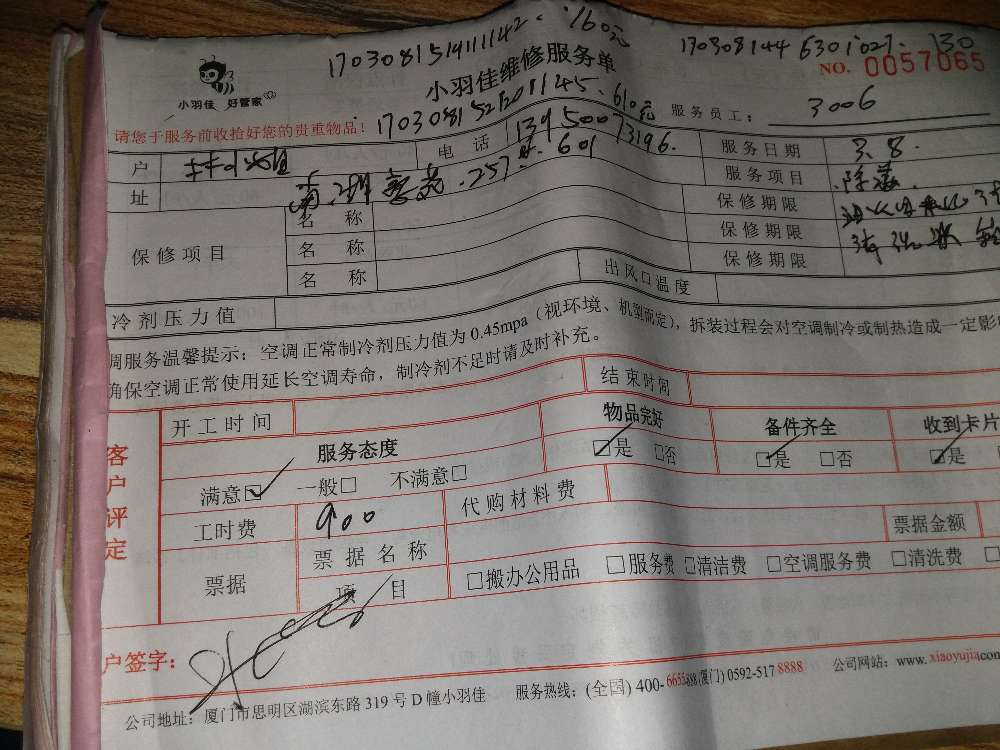 170308151911142. 160元
170308144 6301027. 130
小羽佳 好管家
小羽佳维修服务单
NO. 0057065
请您于服务前收拾好您的贵重物品!
610元
服务员工: 3006
户
电 话 13950073196.
服务日期 3.8.
址
257 601
服务项目
保修项目
名 称
保修期限
名 称
保修期限
名 称
保修期限
冷剂压力值
出风口温度
调服务温馨提示: 空调正常制冷剂压力值为 0.45mpa (视环境、机型而定), 拆装过程会对空调制冷或制热造成一定影
确保空调正常使用延长空调寿命, 制冷剂不足时请及时补充。
客户评定
开工时间
结束时间
服务态度
物品完好
备件齐全
收到卡片
满意☑ 一般□ 不满意□
☑是 □否
☑是 □否
☑是
工时费 900
代购材料费
票据
票据名称
票据金额
项 目
□搬办公用品 □服务费 □清洁费 □空调服务费 □清洗费
户签字:
公司地址: 厦门市思明区湖滨东路 319 号 D 幢小羽佳 服务热线: (全国) 400- (厦门) 0592-517 8888 公司网站: www. xiaoyujia.com